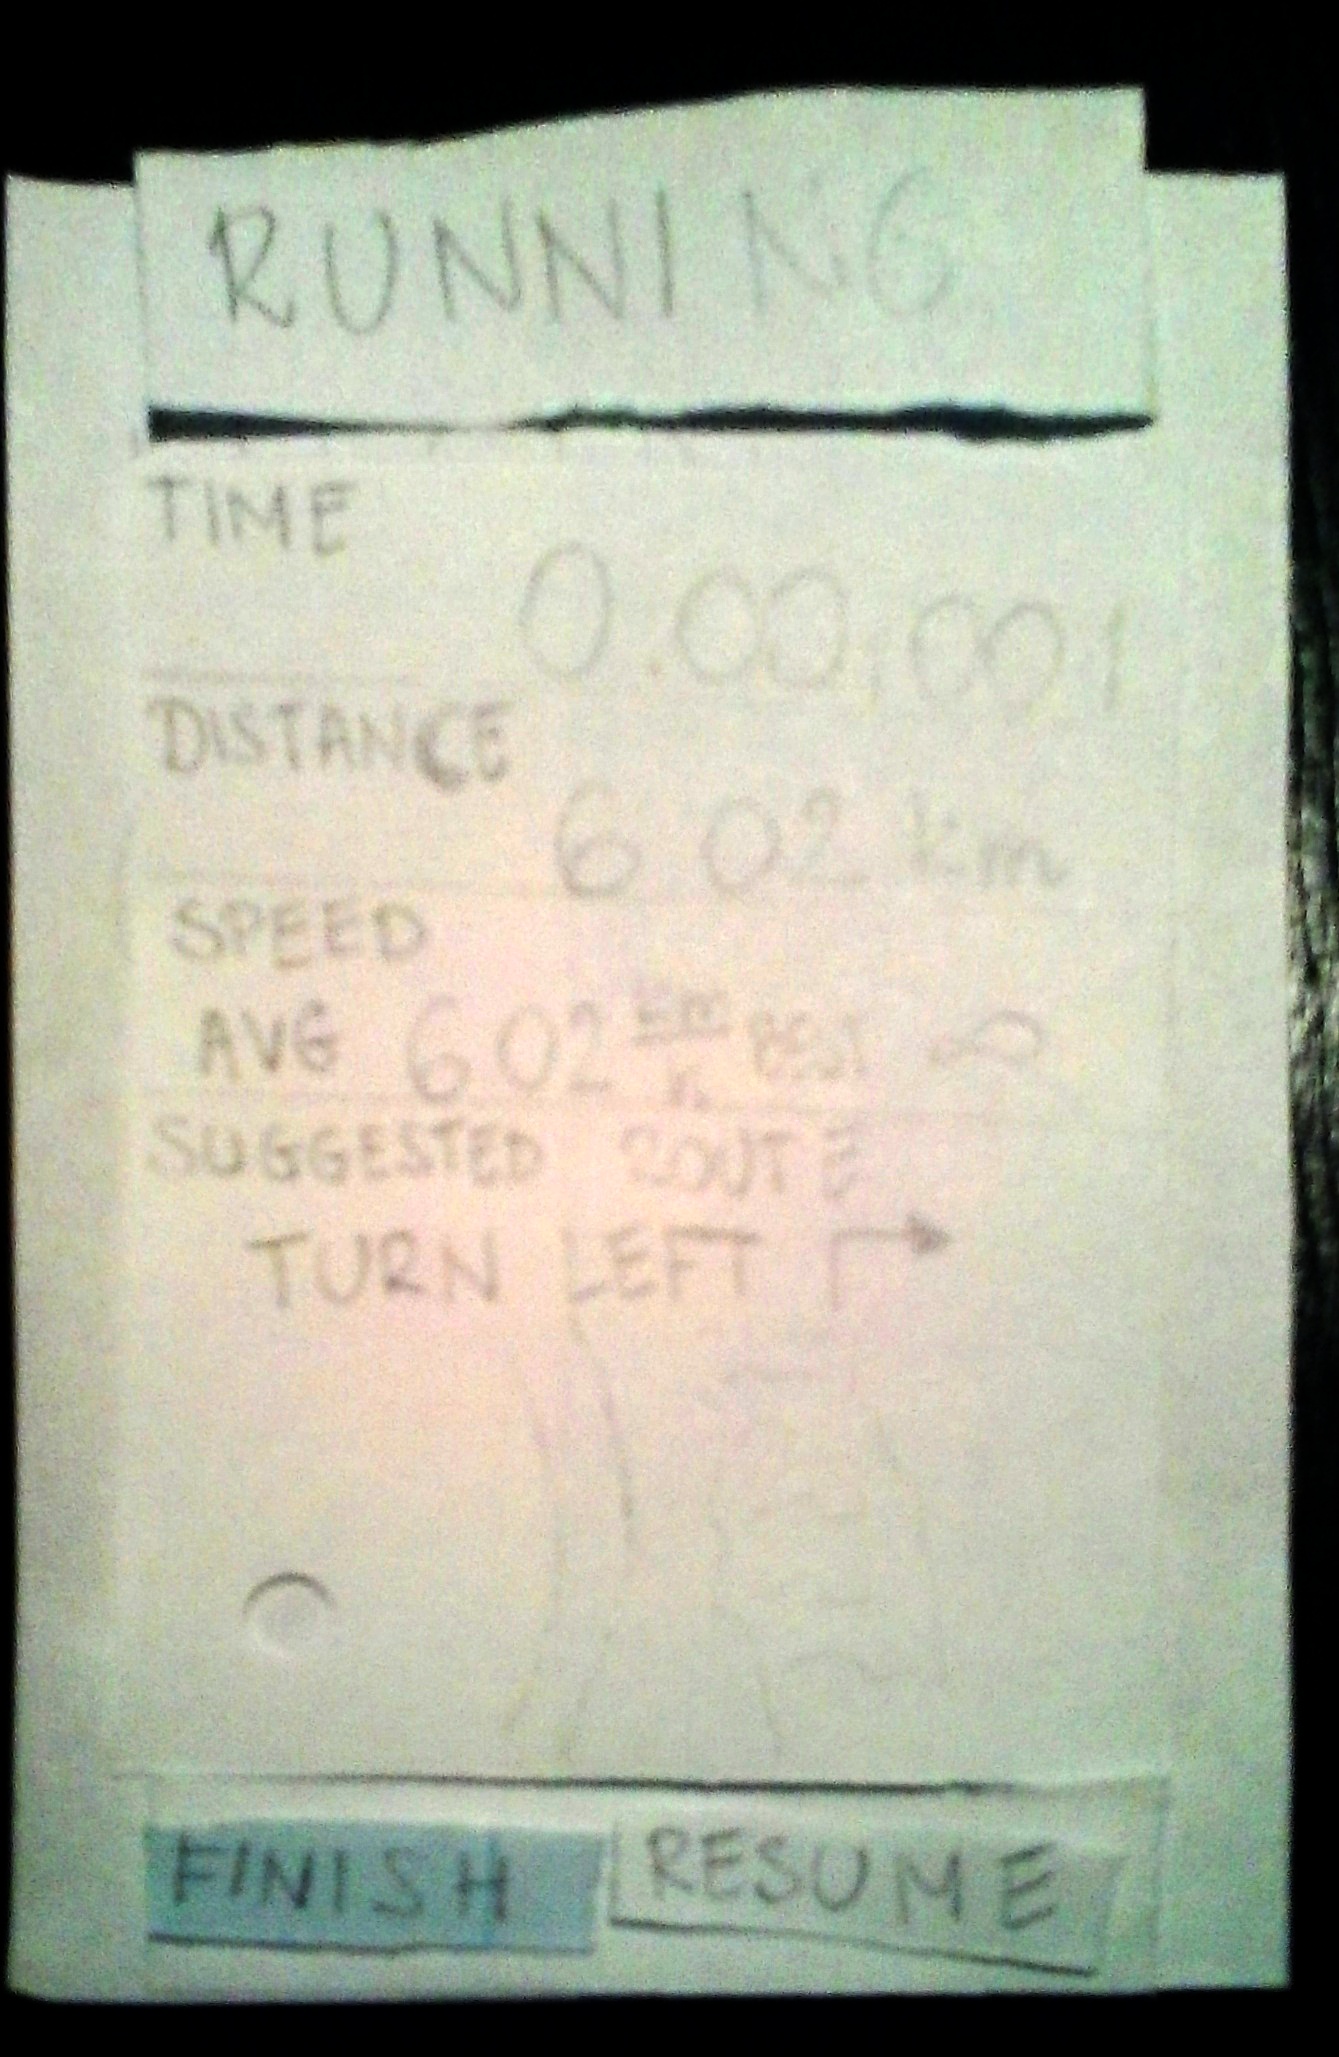 RUNNING
TIME
0.00,001
DISTANCE
6 02 km
SPEED
AVG 6 02 km/h BEST ∞
SUGGESTED ROUTE
TURN LEFT
FINISH RESUME